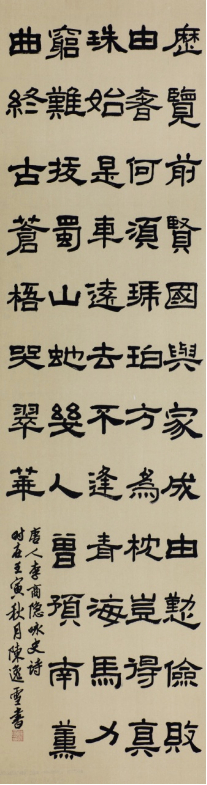 歷覽前賢國與家成由懃儉敗
由奢何須琥珀方為枕豈得真
珠始是車遠去不逢青海馬力
窮難拔蜀山虵幾人曾預南薰
曲終古蒼梧哭翠華
唐人李商隐咏史诗
时在壬寅秋月陳逸雪書